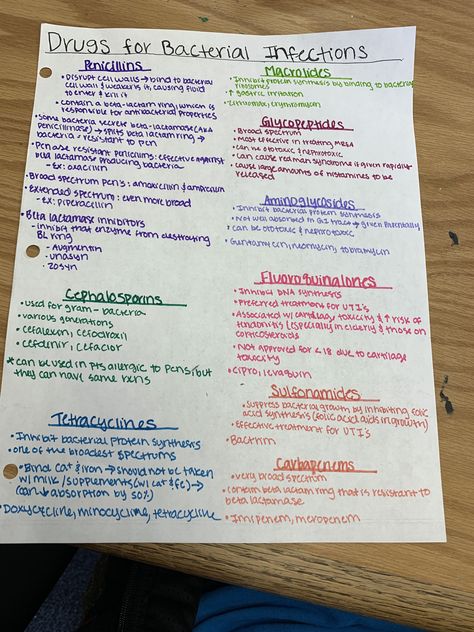 Drugs for Bacterial Infections
Penicillins
• Disrupt cell walls → bind to bacterial
cell wall & weakens it, causing fluid
to enter & kill it
• contain a beta-lactam ring, which is
responsible for antibacterial properties
• Some bacteria secrete beta-lactamase (AKA
penicillinase) → splits beta lactam ring →
bacteria - resistant to pen
• Penase resistant penicillins: effective against
beta lactamase producing bacteria
- Ex: oxacillin
• Broad spectrum pen's: amoxicillin & ampicillin
• Extended spectrum: even more broad
- Ex: piperacillin
• Beta lactamase inhibitors
- inhibit that enzyme from destroying
BL ring
- Augmentin
- unasyn
- zosyn
Cephalosporins
• used for gram - bacteria
• various generations
• cefalexin, cefadroxil
• cefdinir, cefaclor
* can be used in pts allergic to pens, but
they can have same rxns
Tetracyclines
• Inhibit bacterial protein synthesis
• one of the broadest spectrums
• Bind Ca+ & iron → should not be taken
w/ milk / supplements (w/ ca+ & fe) →
(can ↓ absorption by 50%)
• Doxycycline, minocycline, tetracycline
Macrolides
• Inhibit protein synthesis by binding to bacterial
ribosomes
• ↑ gastric irritation
• Zithromax, erythromycin
Glycopeptides
• Broad spectrum
• Most effective in treating MRSA
• Can be ototoxic & nephrotoxic
• Can cause redman syndrome if given rapidly→
cause large amounts of histamines to be
released
Aminoglycosides
• Inhibit bacterial protein synthesis
• Not well absorbed in GI tract → given Parenterally
• Can be ototoxic & nephrotoxic
• Gentamicin, neomycin, tobramycin
Fluoroquinalones
• Inhibit DNA synthesis
• Preferred treatment for UTI's
• Associated w/ cartilage toxicity & ↑ risk of
tendonitis (especially in elderly & those on
corticosteroids
• Not approved for <18 due to cartilage
toxicity
• Cipro, levaquin
Sulfonamides
• Suppress bacterial growth by inhibiting folic
acid synthesis (folic acid aids in growth)
• Effective treatment for UTI's
• Bactrim
Carbapenems
• very broad spectrum
• contain beta lactam ring that is resistant to
beta lactamase
• Imipenem, meropenem